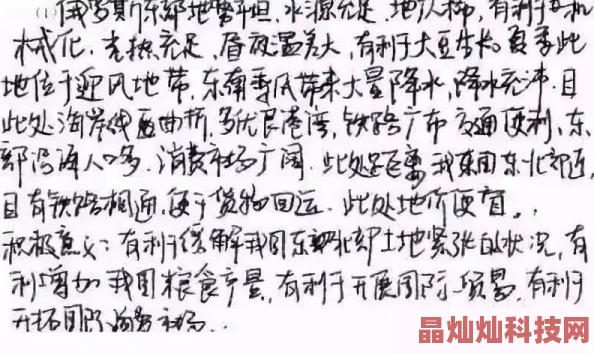 (1)俄罗斯东部地势平坦,水源充足,地广人稀,有利于农机
械化,光热充足,昼夜温差大,有利于大豆生长。夏季此
地位于迎风地带,东南季风带来大量降水,降水充沛.且
此处海岸线曲折,多优良港湾,铁路广布交通便利,东
部沿海人口多.消费市场广阔.此处距离我国东北部近,
且有铁路相通,便于货物回运.此处地价便宜。
积极意义:有利于缓解我国东北部土地紧张的状况,有
利增加我国粮食产量,有利于开展国际贸易,有利于
开拓国际消费市场..
晶灿灿科技网